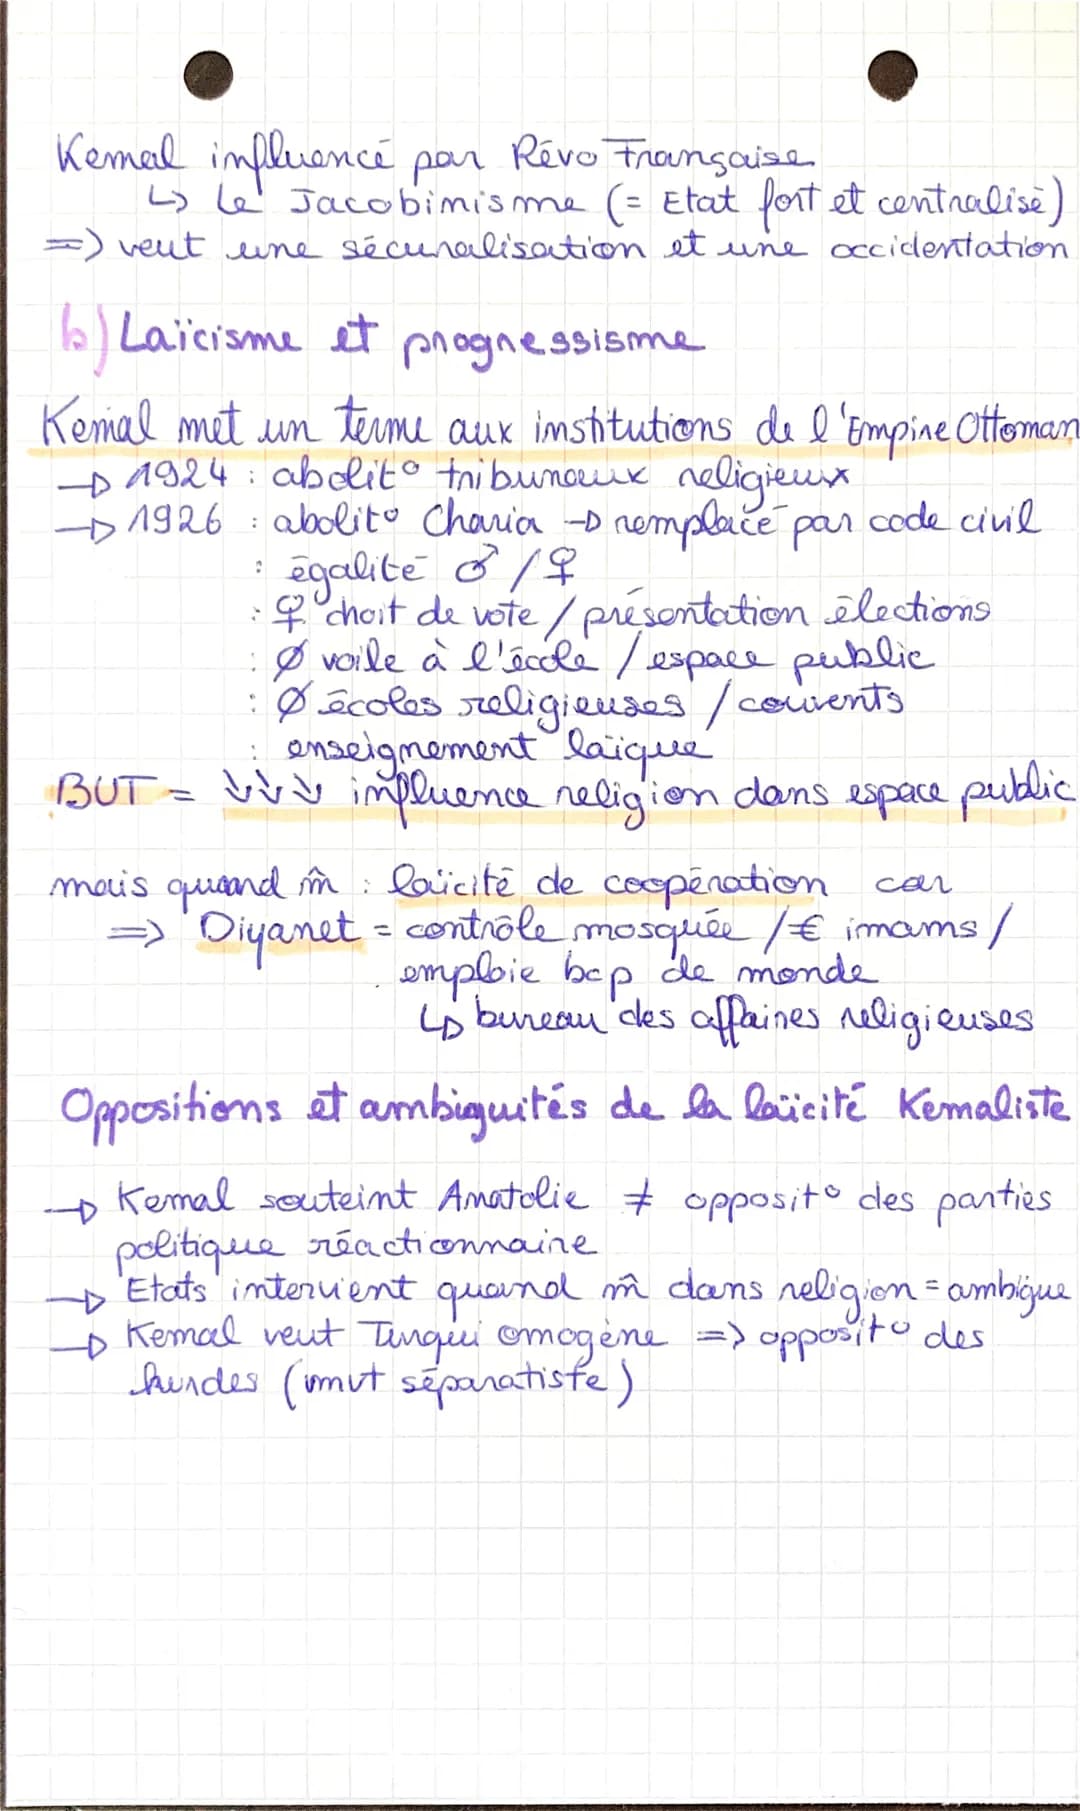 Kemal influencé par Révo Française
↳ Le Jacobinisme (= Etat fort et centralisé)
=> veut une sécuralisation et une occidentation
b) Laïcisme et progressisme
Kemal met un terme aux institutions de l'Empire Ottoman
→ 1924 : abolit° tribunaux religieux
→ 1926 : abolit° Charia → remplacé par code civil
: égalité ♂ / ♀
: ♀ droit de vote / présentation élections
: Ø voile à l'école / espace public
: Ø écoles religieuses / couvents
: enseignement laïque
BUT = ↓↓↓ influence religion dans espace public
mais quand m̂ : laïcité de coopération car
=> Diyanet = contrôle mosquée / € imams /
emploie bcp de monde
↳ bureau des affaires religieuses
Oppositions et ambiguités de la laïcité Kemaliste
→ Kemal souteint Anatolie ≠ opposit° des parties
politique réactionnaire
→ Etats intervient quand m̂ dans religion = ambigue
→ Kemal veut Turqui omogène => opposit° des
kurdes (mvt séparatiste)